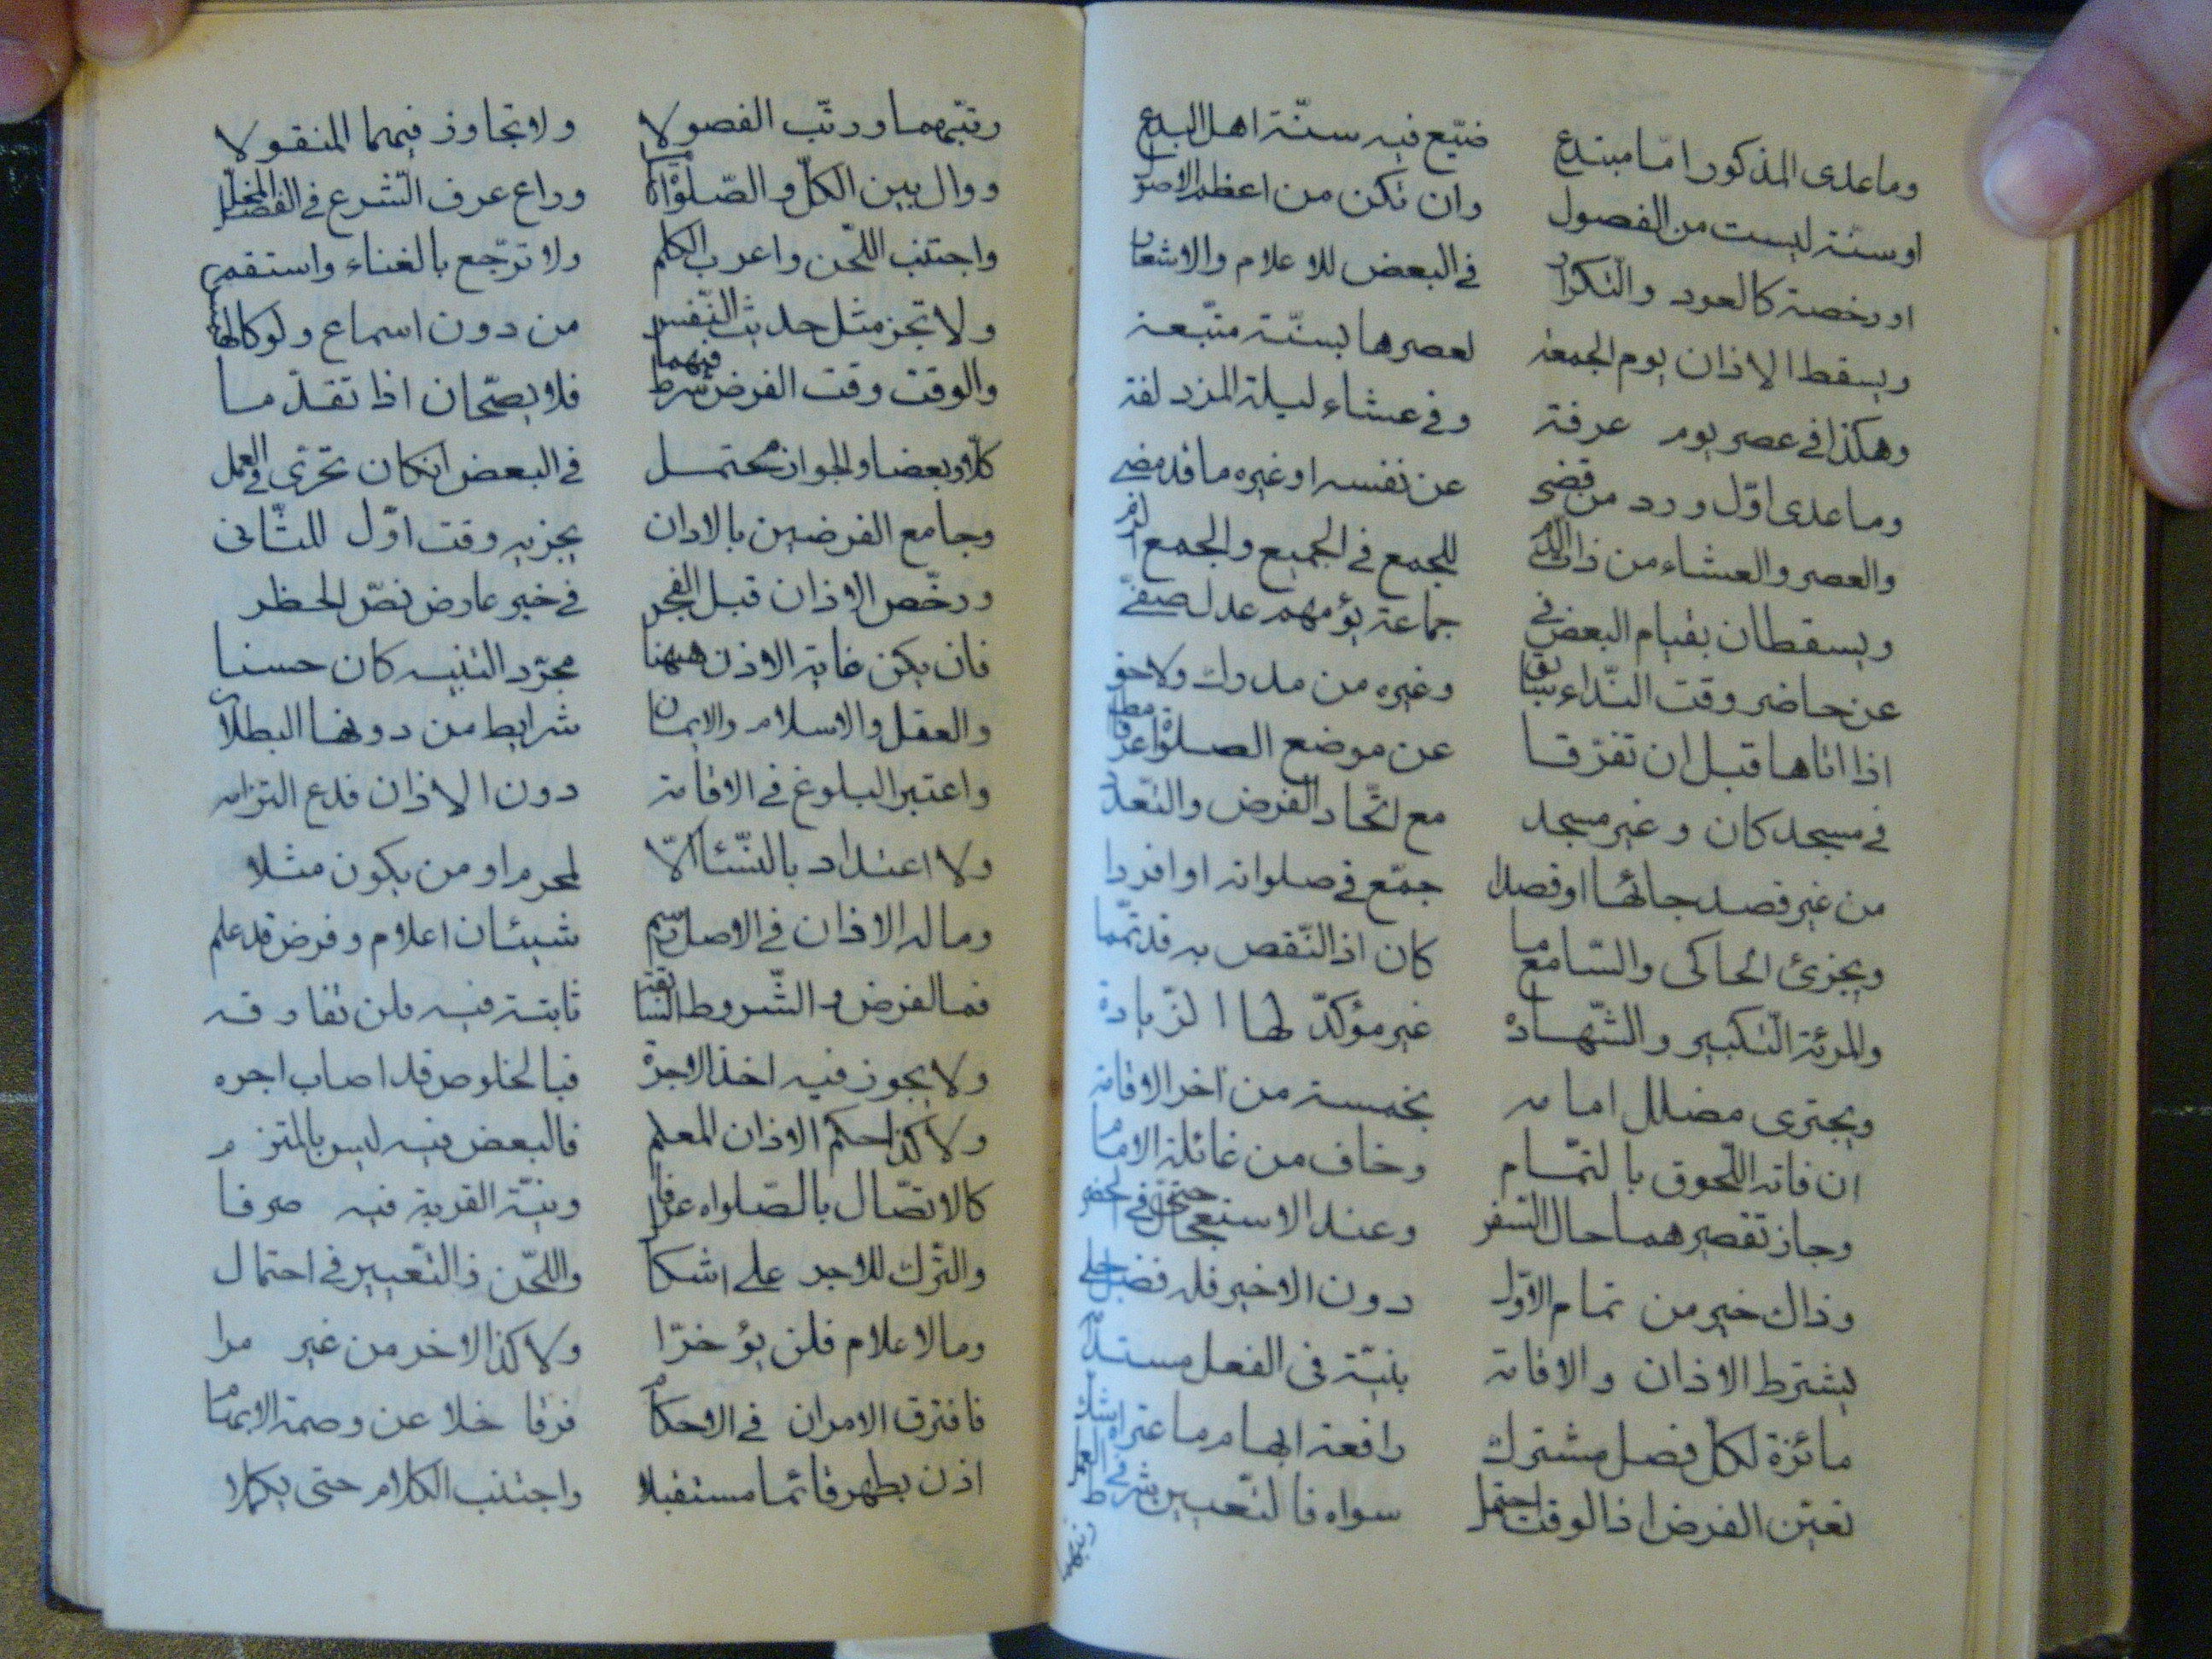 وما عدى المذكور امّا مبتدع ضيّع فيه سنّة اهل البدع
او سنّة ليست من الفصول وان تكن من اعظم الاصول
او رخصة كالعود والتكرار في البعض للاعلام والاشعار
ويسقط الاذان يوم الجمعة لعصرها بسنّة متّبعة
وهكذا في عصر يوم عرفة وفي عشاء ليلة المزدلفة
وما عدى اوّل ورد من قضى عن نفسه او غيره ما قد مضى
والعصر والعشاء من ذا للجمع في الجميع والجمع
ويسقطان بقيام البعض في جماعة يؤمهم عدل صفيّ
عن حاضر وقت النّداء سابق وغيره من مدرك ولاحق
اذا اتاها قبل ان تفرّقا عن موضع الصلوة عرفا مطلقا
في مسجد كان وغير مسجد مع اتّحاد الفرض والتعدّد
من غير قصد جائها او قصدا جمّع في صلواته او افردا
ويجزئ الحاكى والسّامع ما كان اذا النّقص به قد تمّما
والمرئة التكبير والشّهادة غير مؤكدّ لها الزّيادة
ويجتزى مضلل امامه بخمسة من اخر الاقامة
ان فاته اللّحوق بالتمّام وخاف من غائلة الامام
وجاز تقصيرهما حال السّفر وعند الاستعجال حتّى في الحضر
وذاك خير من تمام الاوّل دون الاخير فله فضل جلي
يشترط الاذان والاقامة بنيّة فى الفعل مستدامة
مائزة لكلّ فصل مشترك رافعة ابهام ما اعتراه شك
تعيّن الفرض اذا الوقت احتمل سواه فالتّعيين شرط في العمل
رتبهما
رتبهما ورتّب الفصولا ولا تجاوز فيهما المنقولا
ووال بين الكلّ والصّلوة كما وراع عرف الشّرع في الفصل المخلّ
واجتنب اللّحن واعرب الكلم ولا ترجّع بالغناء واستقم
ولا تجز مثل حديث النّفس من دون اسماع ولو كالهمس
والوقت وقت الفرض شرط فيهما فلا يصحّان اذا تقدّما
كلّا وبعضا والجواز محتمل في البعض ان كان تحرّى في العمل
وجامع الفرضين بالاذان يجزيه وقت اوّل للثّانى
ورخّص الاذان قبل الفجر في خبر عارض نصّ الحظر
فان يكن غاية الاذن ههنا مجرّد التنبيه كان حسنا
والعقل والاسلام والايمان شرايط من دونها البطلان
واعتبر البلوغ في الاقامة دون الاذان فدع التزامه
ولا اعتداد بالنّساء الّا لمحرم او من يكون مثلا
وما له الاذان في الاصل رسم شيئان اعلام وفرض قد علم
فما لفرض والشّروط السّابقة ثابتة فيه ولن تفارقه
ولا يجوز فيه اخذ الاجرة فبالخلوص قد اصاب اجره
ولا كذا حكم الاذان المعلم فالبعض فيه ليس بالملتزم
كالاتصّال بالصّلوة عرفا ونيّة القربة فيه صرفا
والتّرك للاجر على اشكال واللّحن والتّعبير في احتمال
وما لاعلام فلن يؤخرّا ولا كذا الاخر من غير مرا
فافترق الامران في الاحكام فرقا خلا عن وصمة الابهام
اذن بطهر قائما مستقبلا واجتنب الكلام حتى يكملا